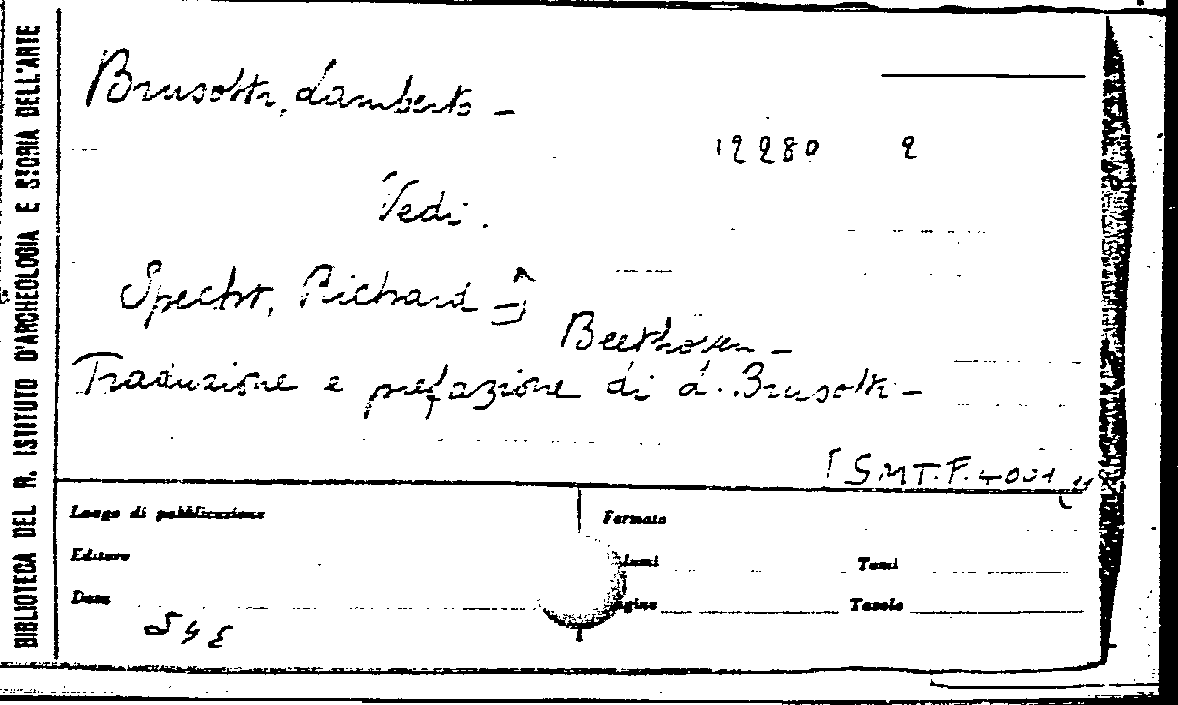 BIBLIOTECA DEL R. ISTITUTO D'ARCHEOLOGIA E STORIA DELL'ARTE
Brusotti, Lamberto -
12280 2
Vedi.
Specht, Richard -
Beethoven -
Traduzione e prefazione di L. Brusotti -
[SMT.F.4001
Luogo di pubblicazione
Formato
Editore
Tomi
Data
Tavole